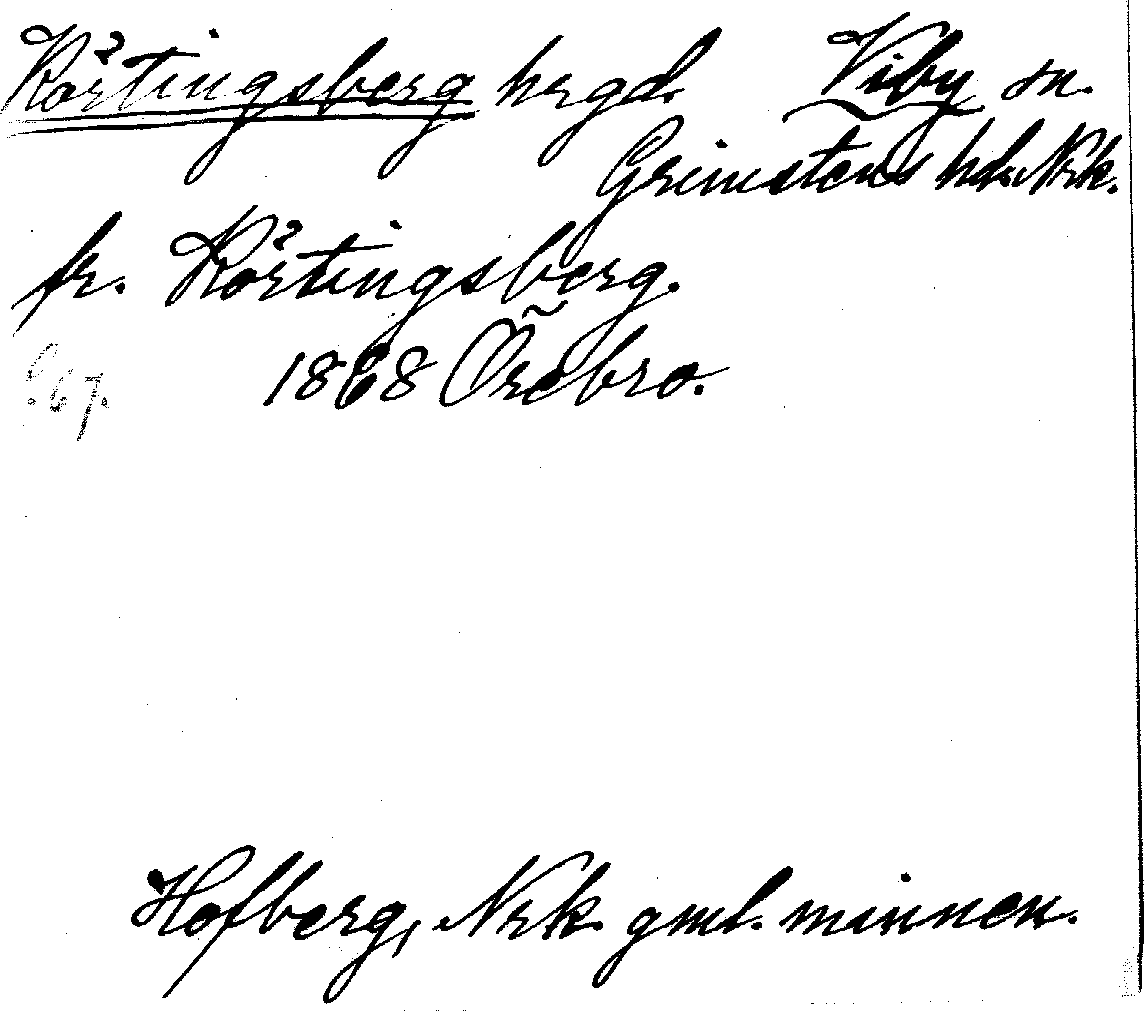 Körtingsberg hrgd. Viby sn.
Grimstens hd. Nrk.
fr. Körtingsberg.
1868 Örebro.
s. 67.
Hofberg, Nrk. gml. minnen.